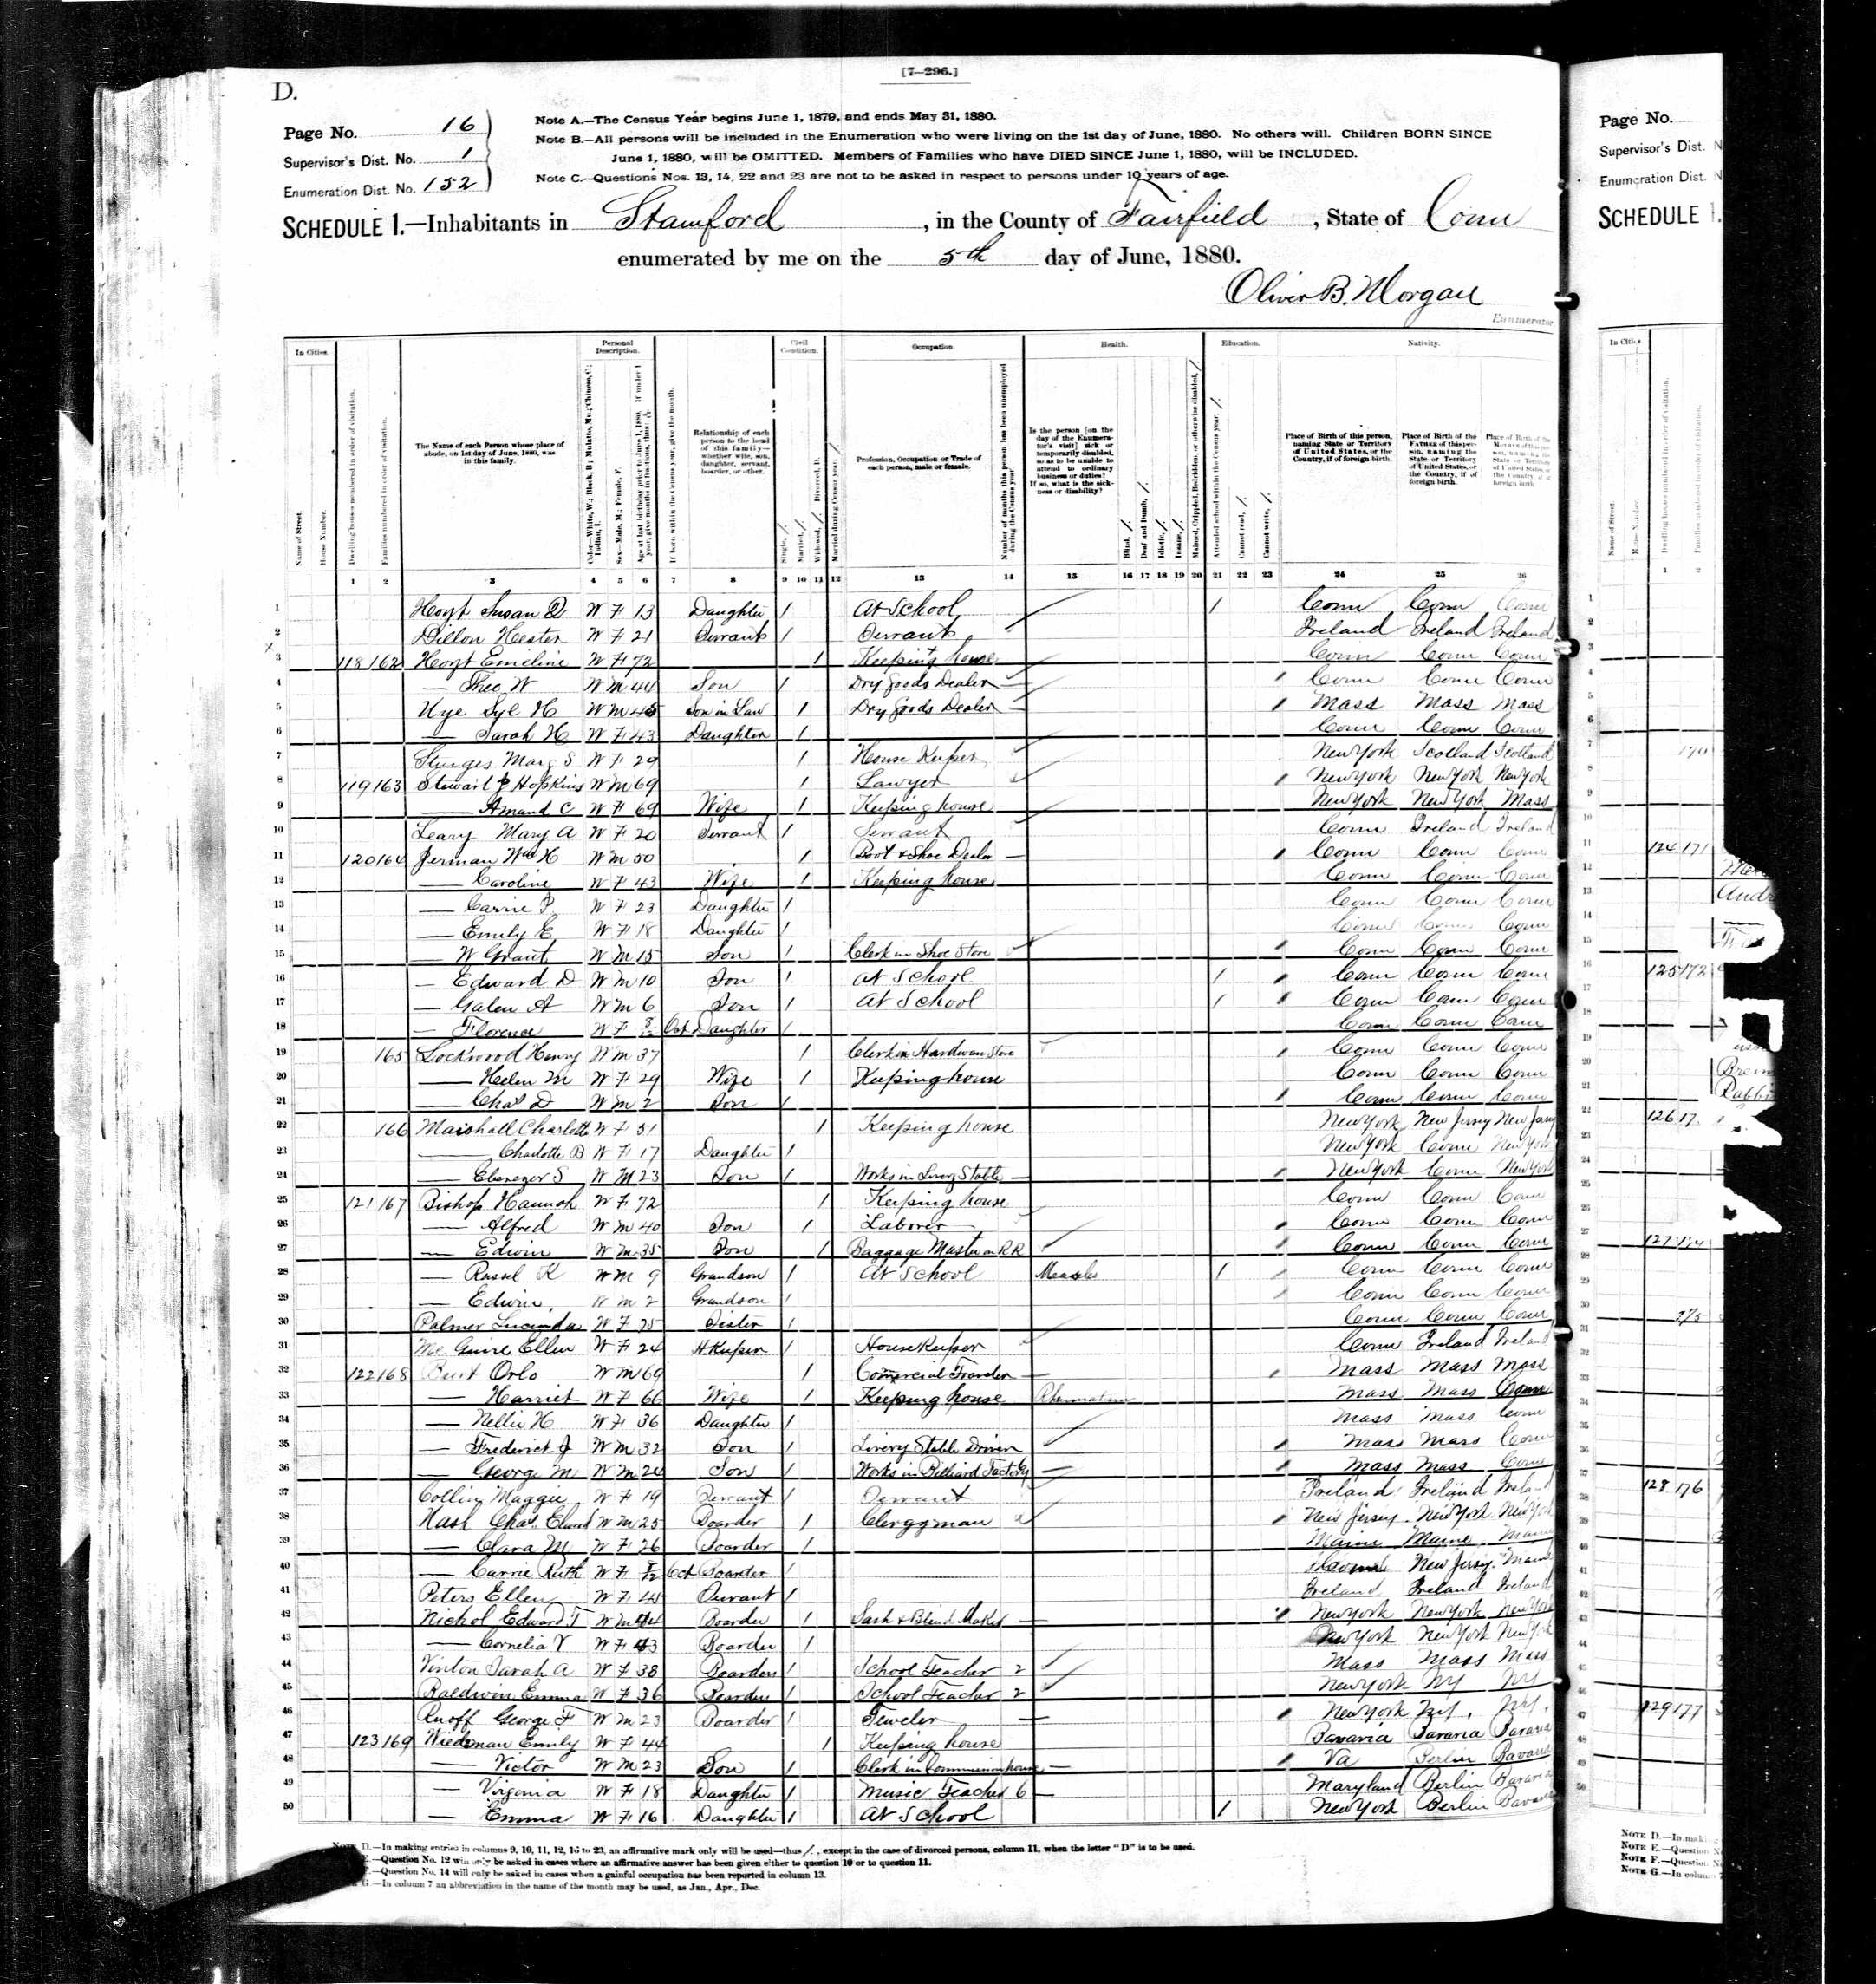 [7-296.]
D.
Page No. 16
Supervisor's Dist. No. 1
Enumeration Dist. No. 152
Note A.—The Census Year begins June 1, 1879, and ends May 31, 1880.
Note B.—All persons will be included in the Enumeration who were living on the 1st day of June, 1880. No others will. Children BORN SINCE
June 1, 1880, will be OMITTED. Members of Families who have DIED SINCE June 1, 1880, will be INCLUDED.
Note C.—Questions Nos. 13, 14, 22 and 23 are not to be asked in respect to persons under 10 years of age.
SCHEDULE 1.—Inhabitants in Stamford, in the County of Fairfield, State of Conn
enumerated by me on the 5th day of June, 1880.
Oliver B. Morgan
Enumerator
In Cities. Personal Description. Civil Condition. Occupation. Health. Education. Nativity.
The Name of each Person whose place of abode, on 1st day of June, 1880, was in this family.
Relationship of each person to the head of this family—whether wife, son, daughter, servant, boarder, or other.
Profession, Occupation or Trade of each person, male or female.
Is the person [on the day of the Enumerator's visit] sick or temporarily disabled, so as to be unable to attend to ordinary business or duties? If so, what is the sickness or disability?
Place of Birth of this person, naming State or Territory of United States, or the Country, if of foreign birth.
Place of Birth of the FATHER of this person, naming the State or Territory of United States, or the Country, if of foreign birth.
1 2 3 4 5 6 7 8 9 10 11 12 13 14 15 16 17 18 19 20 21 22 23 24 25 26
1 Hoyt Susan D W F 13 Daughter / At School / Conn Conn Conn
2 Dillon Hester W F 21 Servant / Servant Ireland Ireland Ireland
3 118 162 Hoyt Emeline W F 72 / Keeping house Conn Conn Conn
4 — Theo W W M 44 Son / Dry Goods Dealer — Conn Conn Conn
5 Nye Syl H W M 45 Son in Law / Dry Goods Dealer — Mass Mass Mass
6 — Sarah H W F 43 Daughter / Conn Conn Conn
7 Sturges Marg S W F 29 / House Keeper New York Scotland Scotland
8 119 163 Stewart Hopkins W M 69 / Lawyer New York New York New York
9 — Amand C W F 69 Wife / Keeping house New York New York Mass
10 Leary Mary A W F 20 Servant / Servant Conn Ireland Ireland
11 120 164 Jerman Wm H W M 50 / Boot & Shoe Dealer — Conn Conn Conn
12 — Caroline W F 43 Wife / Keeping house Conn Conn Conn
13 — Carrie P W F 23 Daughter / Conn Conn Conn
14 — Emily E W F 18 Daughter / Conn Conn Conn
15 — W Grant W M 15 Son / Clerk in Shoe Store Conn Conn Conn
16 — Edward D W M 10 Son / At School / Conn Conn Conn
17 — Galen A W M 6 Son / At School / Conn Conn Conn
18 — Florence W F 8/12 Oct Daughter / Conn Conn Conn
19 165 Lockwood Henry W M 37 / Clerk in Hardware Store Conn Conn Conn
20 — Helen M W F 29 Wife / Keeping house Conn Conn Conn
21 — Chas D W M 2 Son / Conn Conn Conn
22 166 Marshall Charlotte W F 51 / Keeping house New York New Jersey New Jersey
23 — Charlotte B W F 17 Daughter / New York Conn New York
24 — Ebenezer S W M 23 Son / Works in Livery Stable — New York Conn New York
25 121 167 Bishop Hannah W F 72 / Keeping house Conn Conn Conn
26 — Alfred W M 40 Son / Laborer Conn Conn Conn
27 — Edwin W M 35 Son / Baggage Master on R R Conn Conn Conn
28 — Russel K W M 9 Grandson / At School Measles / Conn Conn Conn
29 — Edwin W M 2 Grandson / Conn Conn Conn
30 Palmer Lucinda W F 75 Sister / Conn Conn Conn
31 Mc Guire Ellen W F 24 H Keeper / House Keeper Conn Ireland Ireland
32 122 168 Burt Orlo W M 69 / Comercial Traveler — Mass Mass Mass
33 — Harriet W F 66 Wife / Keeping house Rheumatism Mass Mass Conn
34 — Nellie H W F 36 Daughter / Mass Mass Conn
35 — Frederick J W M 32 Son / Livery Stable Driver Mass Mass Conn
36 — George M W M 24 Son / Works in Billiard Factory — Mass Mass Conn
37 Collins Maggie W F 19 Servant / Servant Ireland Ireland Ireland
38 Nash Chas. W M 25 Boarder / Clergyman New Jersey New York New York
39 — Clara M W F 26 Boarder / Maine Maine Maine
40 — Carrie Ruth W F Oct Boarder / Conn New Jersey Maine
41 Peters Ellen W F Servant / Ireland Ireland Ireland
42 Nichol Edward T W M 44 Boarder / Sash & Blind Maker — New York New York New York
43 — Cornelia V W F 43 Boarder / New York New York New York
44 Vinton Sarah A W F 38 Boarder / School Teacher 2 Mass Mass Mass
45 Baldwin Emma W F 36 Boarder / School Teacher 2 New York NY NY
46 Ruoff George F W M 23 Boarder / Jeweler — New York
47 123 169 Wiedman Emily W F 44 / Keeping house Bavaria Bavaria Bavaria
48 — Victor W M 23 Son / Clerk in Commission house — Va Berlin Bavaria
49 — Virginia W F 18 Daughter / Music Teacher 6 — Maryland Berlin Bavaria
50 — Emma W F 16 Daughter / At School / New York Berlin Bavaria
Note D.—In making entries in columns 9, 10, 11, 12, 16 to 23, an affirmative mark only will be used—thus /, except in the case of divorced persons, column 11, when the letter "D" is to be used.
E.—Question No. 12 will only be asked in cases where an affirmative answer has been given either to question 10 or to question 11.
F.—Question No. 14 will only be asked in cases when a gainful occupation has been reported in column 13.
G.—In column 7 an abbreviation in the name of the month may be used, as Jan., Apr., Dec.
Page No.
Supervisor's Dist.
Enumeration Dist.
SCHEDULE 1.
In Cities.
124 171
125 172
128 176
129 177